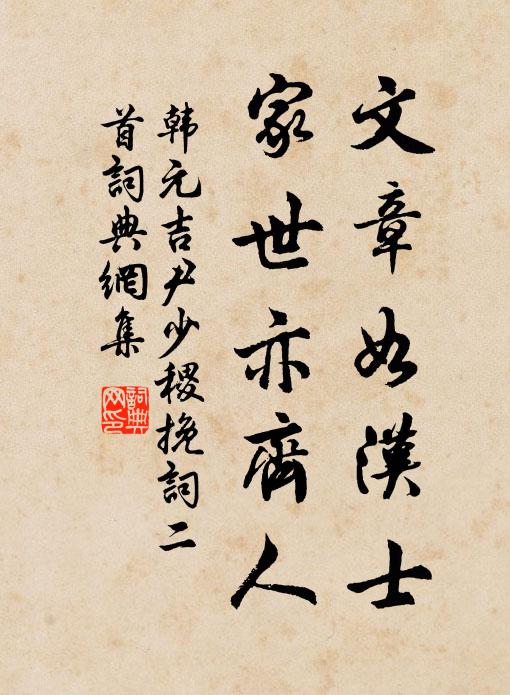 文章如漢士
家世亦齊人
韩元吉尹少稷挽詞二
首詞典網集
詞典
网印